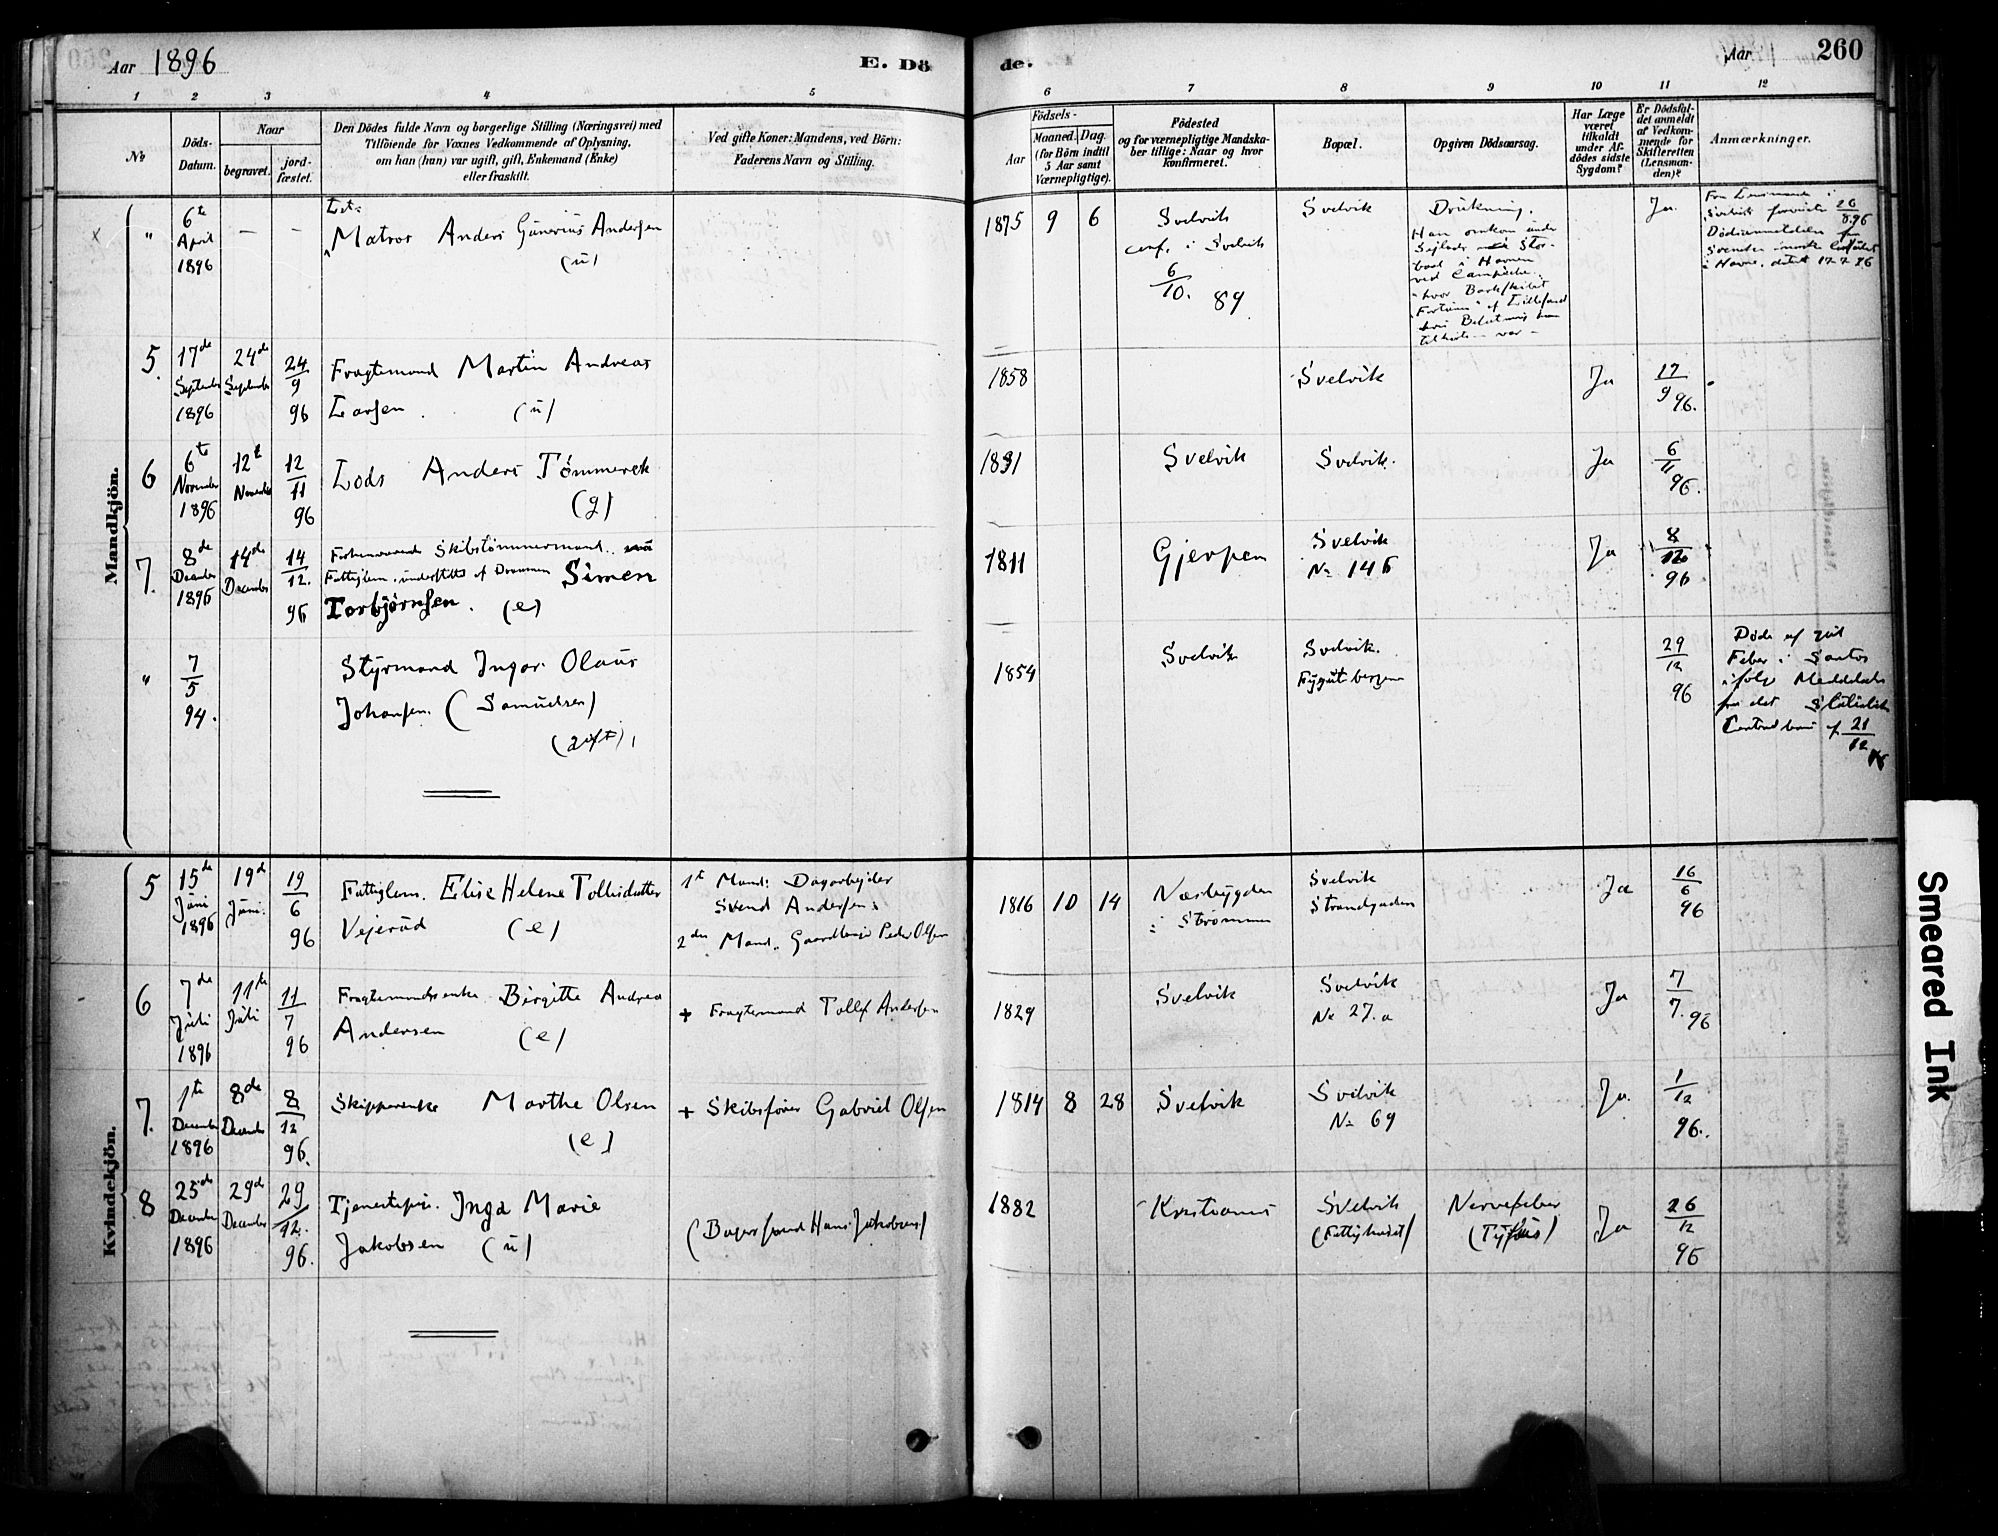 Aar 1896
E. Dö
de.
Aar
260
1 2 3 4 5 6 7 8 9 10 11 12
No
Döds-
Datum.
Naar
begravet.
jord-
fæstet.
Den Dödes fulde Navn og borgerlige Stilling (Næringsvei) med
Tilföiende for Voxnes Vedkommende af Oplysning,
om han (hun) var ugift, gift, Enkemand (Enke)
eller fraskilt.
Ved gifte Koner: Mandens, ved Börn:
Faderens Navn og Stilling.
Födsels-
Aar
Maaned.
Dag.
(for Börn indtil
5 Aar samt
Værnepligtige).
Födested
og for værnepligtige Mandska-
ber tillige: Naar og hvor
konfirmeret.
Bopæl.
Opgiven Dödsaarsag.
Har Læge
været
tilkaldt
under Af-
dödes sidste
Sygdom?
Er Dödsfal-
det anmeldt
af Vedkom-
mende for
Skifteretten
(Lensman-
den)?
Anmærkninger.
Mandkjön.
"
6te
April
1896
— —
Matros Anders Gunerius Andersen
(u)
1875 9 6
Svelvik
conf. i Svelvik
6/10. 89
Svelvik
Drukning.
Han omkom under
Seilads
Stor-
baad i Havnen
ved Campeche
hvor Barkskibet
"Fortuna" af Lillesand
hvis Besætning han
tilhørte var –
Ja.
26/8 96
i Havre, datert 17-7 96
5.
17de
September
1896
24de
September
24/9 96
Fragtemand Martin Andreas
Larsen. (u)
1858
Svelvik
Ja
17/9 96.
6
6te
November
1896
12te
November
12/11 96
Lods Anders Tömmerek
(g)
1831
Svelvik
Svelvik.
Ja
6/11 96.
7.
8de
December
1896
14de
December
14/12. 96
Forhenværende Skibstömmermand
Fattiglem, understöttet af Drammen Simen
Torbjörnsen. (e)
1811
Gjerpen
Svelvik
No 146
Ja
8/12 96
"
7/5 94.
Styrmand Ingar Olaus
Johansen. (Samuelsen)
(gift)
1854
Svelvik
Svelvik.
29/12 96
Döde af gul
Feber i Santos
ifölge Meddelelse
fra det Statistiske
Centralbureau af 21/12 96
Kvindekjön.
5
15de
Juni
1896
19de
Juni.
19/6 96
Fattiglem. Elise Helene Tollisdatter
Vejerud (e)
1te Mand: Dagarbejder
Svend Andersen.
2den Mand. Gaardbruger Peder Olsen
1816 10 14
Næsbygden
i Strømmen
Svelvik
Strandgaden
Ja
16/6 96
6
7de
Juli
1896
11te
Juli
11/7 96
Fragtemandsenke Birgitte Andrea
Andersen (e)
+ Fragtemand Tollef Andersen
1829
Svelvik
Svelvik
No 27.a
Ja
7/7. 96
7.
1te
December
1896
8de
December
8/12 96.
Skipperenke Marthe Olsen
(e)
+ Skibsförer Gabriel Olsen
1814 8 28
Svelvik
Svelvik
No 69
Ja
1/12 96.
8
25de
December
1896
29de
December
29/12. 96.
Tjenestepige. Inga Marie
Jakobsen (u)
(Bagersvend Hans Jakobsen)
1882
Kristiania
Svelvik
(Fattighuset)
Nervefeber
(Tyfus)
Ja
26/12 96
Smeared Ink